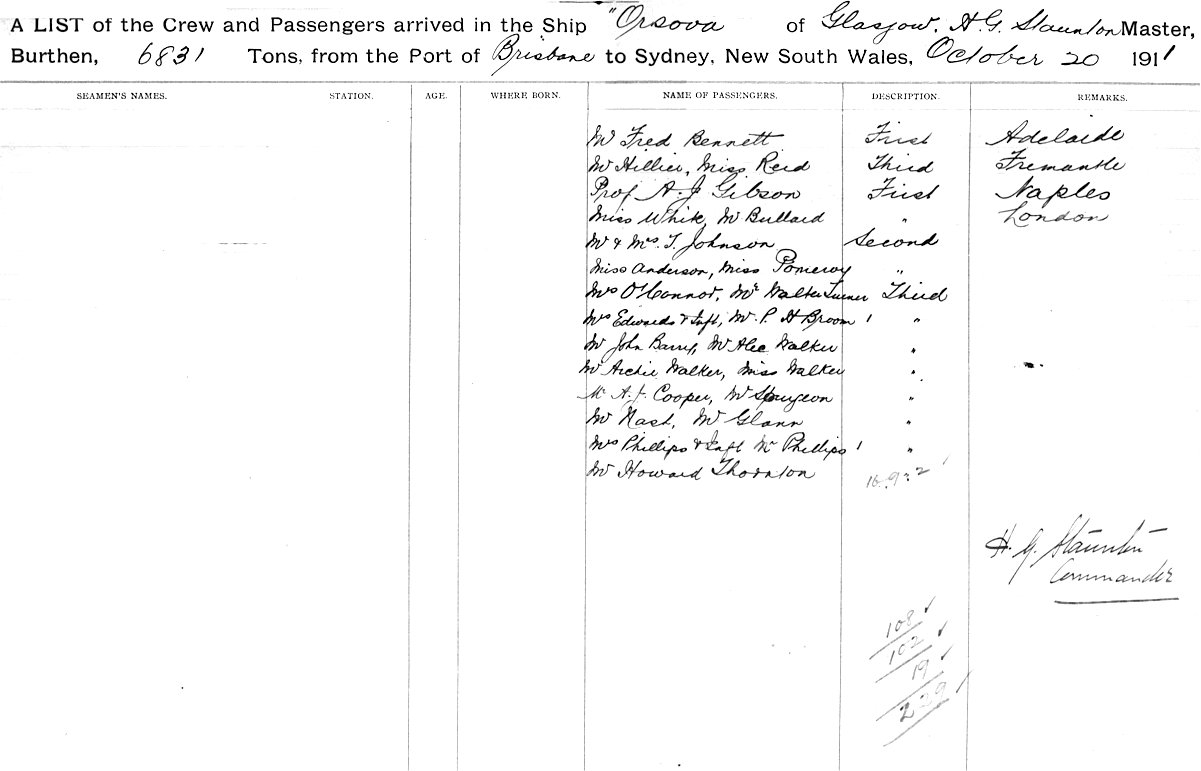 A LIST of the Crew and Passengers arrived in the Ship "Orsova of Glasgow, H. G. Staunton Master,
Burthen, 6831 Tons, from the Port of Brisbane to Sydney, New South Wales, October 20 1911
SEAMEN'S NAMES. STATION. AGE. WHERE BORN. NAME OF PASSENGERS. DESCRIPTION. REMARKS.
Mr Fred Bennett First Adelaide
Mr Hillier, Miss Reid Third Fremantle
Prof A. J. Gibson First Naples
Miss White, Mr Bullard " London
Mr & Mrs. T. Johnson Second
Miss Anderson, Miss Pomeroy "
Mrs O'Connor, Mr Walter Turner Third
Mrs Edwards & Inft, Mr P. H Broom 1 "
Mr John Barry, Mr Alec Walker "
Mr Archie Walker, Miss Walker "
Mr A. J. Cooper, Mr Spurgeon "
Mr Nash, Mr Glann "
Mrs Phillips & Inft Mr Phillips 1 "
Mr Howard Thornton
H. G. Staunton
Commander
108
102
19
229